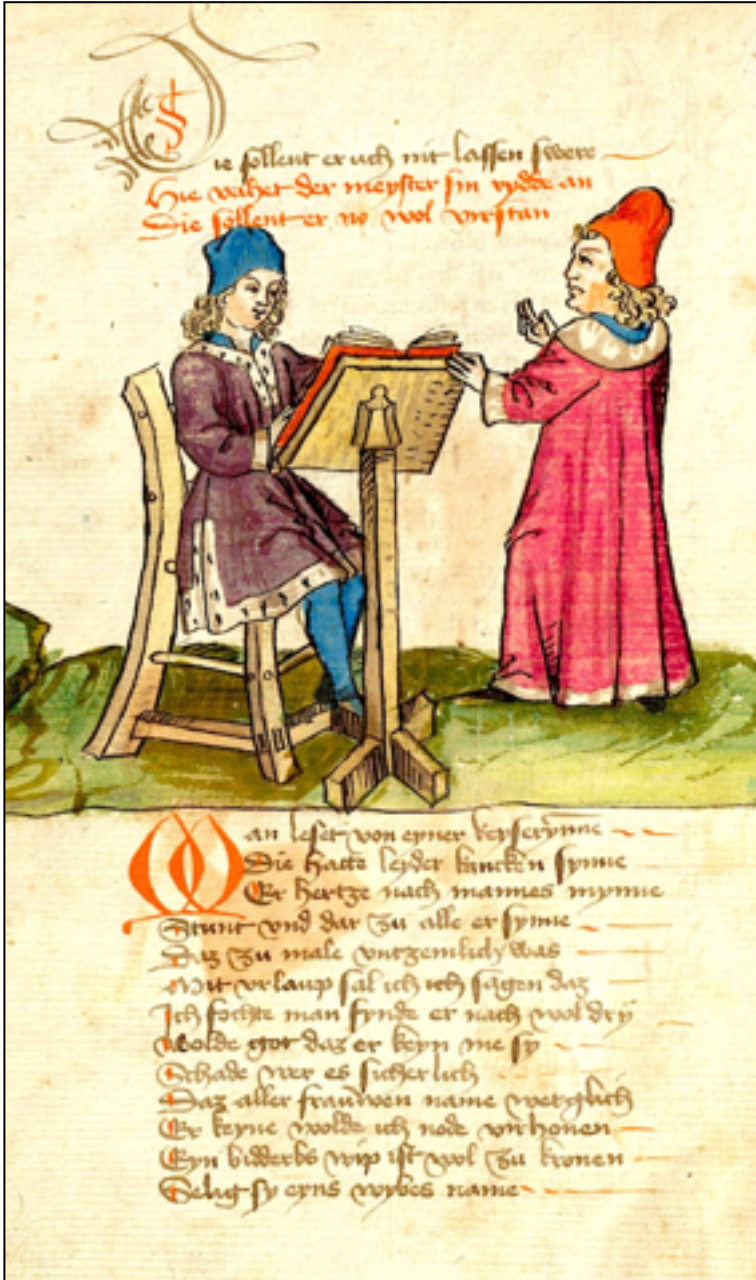 Sie sollent er uch nit lassen swere
Hie vehet der meyster sin rydde an
Die sollent er no wol virstan
Man leset von eyner keyserynne
Die hatte leyder krancken synne
Er hertze nach mannes mynne
Stunt vnd dar zu alle er synne
Daz zu male vntzemlich was
Mit vrlaup sal ich ich sagen daz
Ich fochte man fynde er nach wol dry
Wolde got daz er keyn me sy
Schade wer es sicherlich
Daz aller frauwen name
Er keyne wolde ich node virhonen
Eyn bidderbs wip ist wol zu kronen
Selig sy eyns wybes name